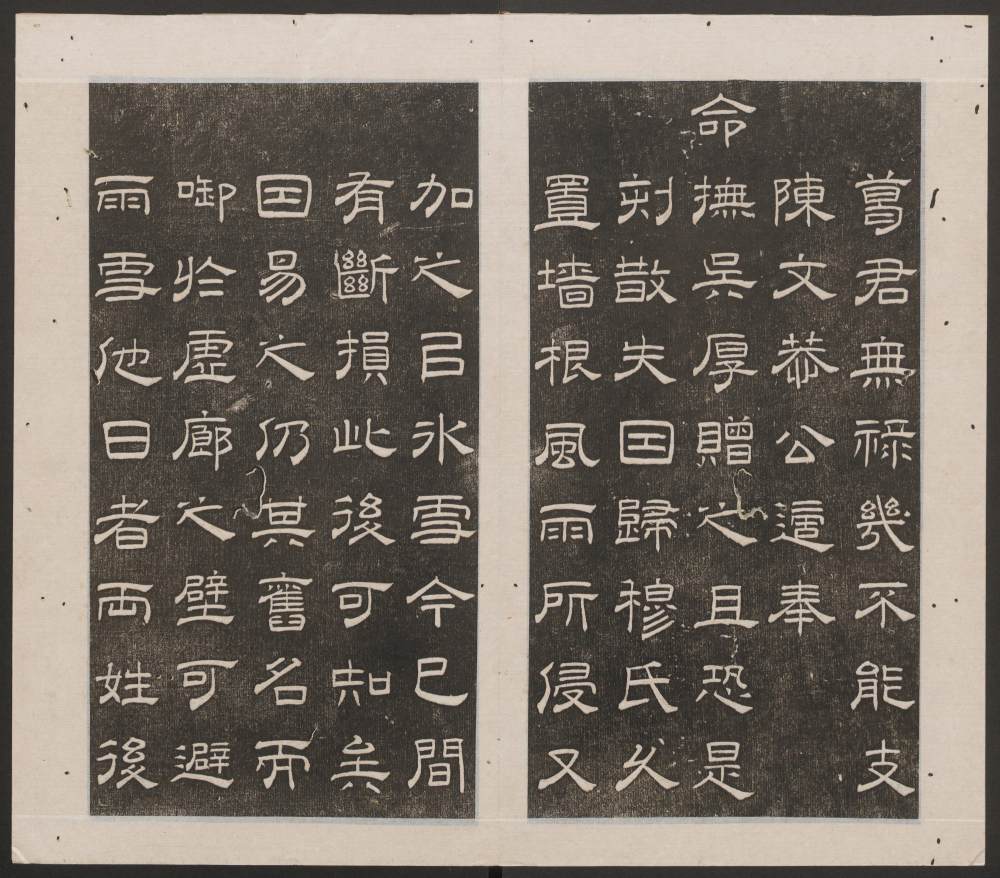 葛君無祿幾不能支
陳文恭公適奉
命撫吳厚贈之且恐是
刻散失囙歸穆氏乆
置墻根風雨所侵又
加之㠯氷雪今已間
有斷損此後可知矣
囙易之仍其舊名而
啣於虛廊之壁可避
雨雪他日者两姓後